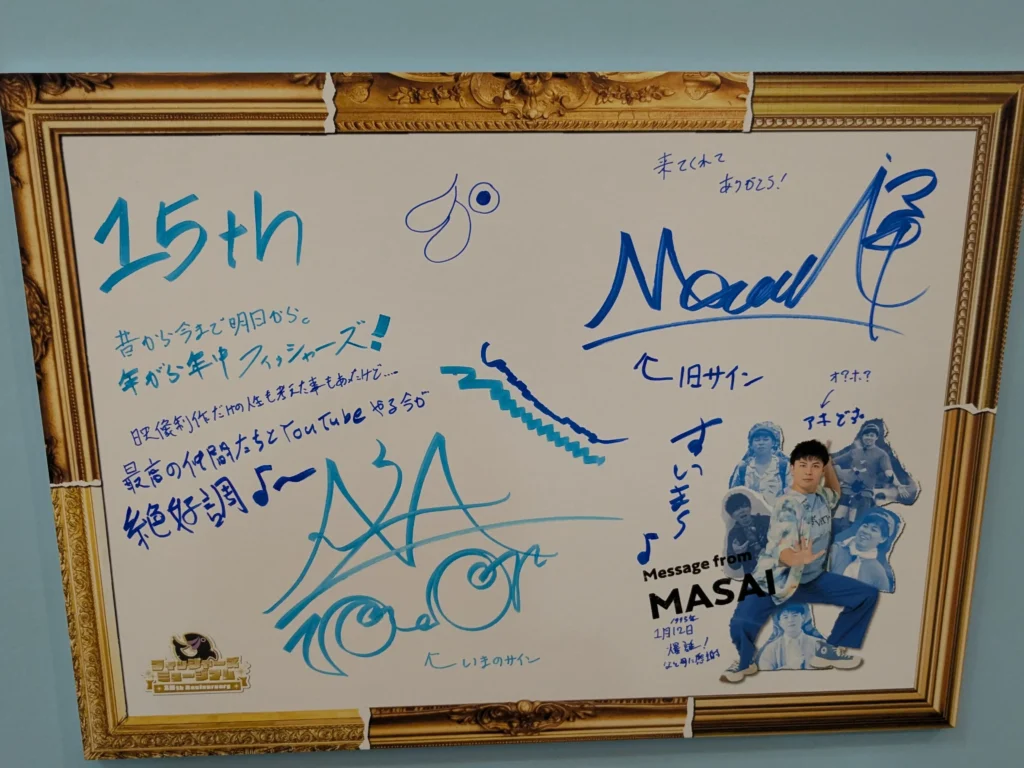 15th
昔から今まで明日から。
年がら年中フィッシャーズ!
映像制作だけの人生も考えた事もあったけど……
最高の仲間たちとYouTubeやる今が
絶好調♪〜
来てくれて
ありがとう!
Masai
↖旧サイン
すいま〜♪
オ?ホ?
アキです。
Message from
MASAI
1995年
1月12日
爆誕!
↖いまのサイン
フィッシャーズ
ミュージアム
15th Anniversary